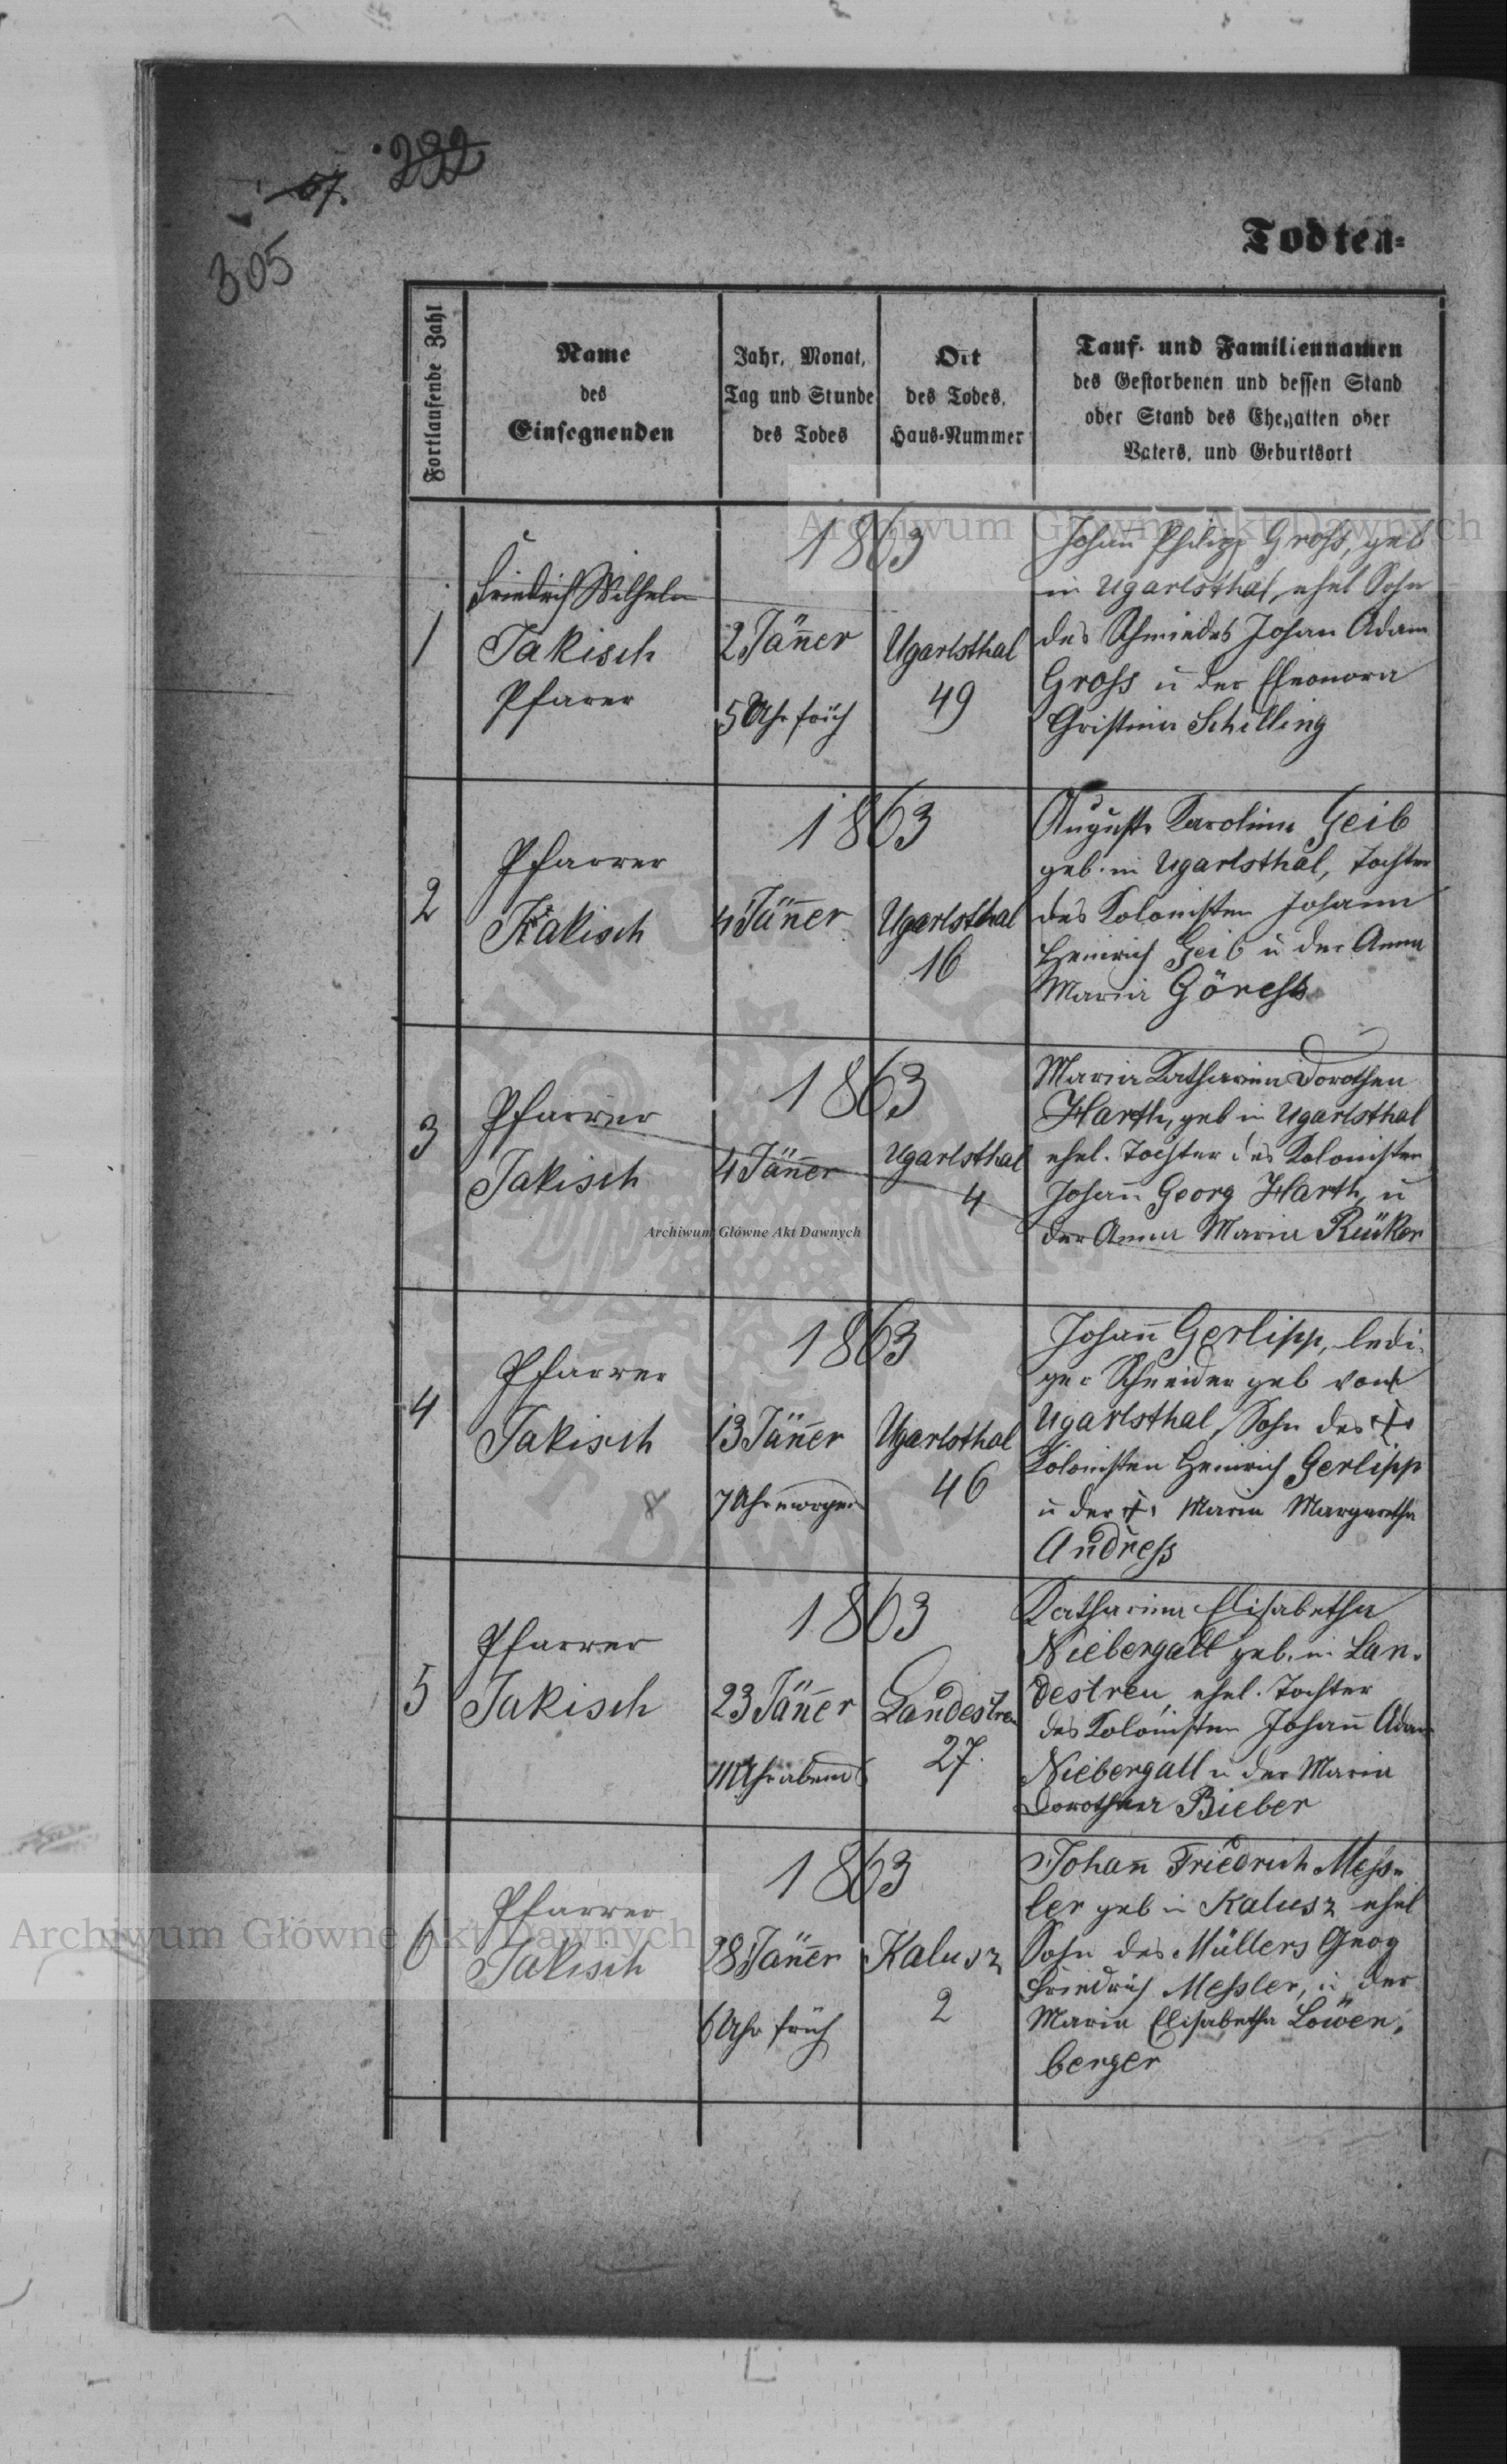 57.
232
305
Todten-
Fortlaufende Zahl
Name
des
Einsegnenden
Jahr, Monat,
Tag und Stunde
des Todes
Ort
des Todes,
Haus-Nummer
Tauf- und Familiennamen
des Gestorbenen und dessen Stand
oder Stand des Ehegatten oder
Vaters, und Geburtsort
1
Friedrich Wilhelm
Jakisch
Pfarer
1863
2 Jäner
5 Uhr früh
Ugartsthal
49
Johan Philipp Gross, geb
in Ugartsthal, ehel Sohn
des Schmiedes Johan Adam
Gross u der Eleonora
Christina Schilling
2
Pfarrer
Jakisch
1863
4 Jäner
Ugartsthal
16
Augusta Karolina Geib
geb. in Ugartsthal, Tochter
des Kolonisten Johann
Heinrich Geib u der Anna
Maria Göress
3
Pfarrer
Jakisch
1863
4 Jäner
Ugartsthal
4
Maria Katharina Dorothea
Harth, geb in Ugartsthal
ehel. Tochter des Kolonisten
Johan Georg Harth u
der Anna Maria Rüker
4
Pfarrer
Jakisch
8
1863
13 Jäner
7 Uhr morgen
Ugartsthal
46
Johan Gerlipp, ledi-
ger Schneider geb von
Ugartsthal, Sohn des †
Kolonisten Heinrich Gerlipp
u der † Maria Margaretha
Andress
5
Pfarrer
Jakisch
1863
23 Jäner
11 Uhr abend
Landestreu
27.
Katharina Elisabetha
Niebergall geb. in Lan-
destreu, ehel. Tochter
des Kolonisten Johan Adam
Niebergall u der Maria
Dorothea Bieber
6
Pfarrer
Jakisch
1863
28 Jäner
6 Uhr früh
Kalusz
2
Johan Friedrich Mess-
ler geb in Kalusz ehel
Sohn des Müllers Georg
Friedrich Messler, u der
Maria Elisabetha Löwen-
berger
Archiwum Główne Akt Dawnych
Archiwum Główne Akt Dawnych
Archiwum Główne Akt Dawnych